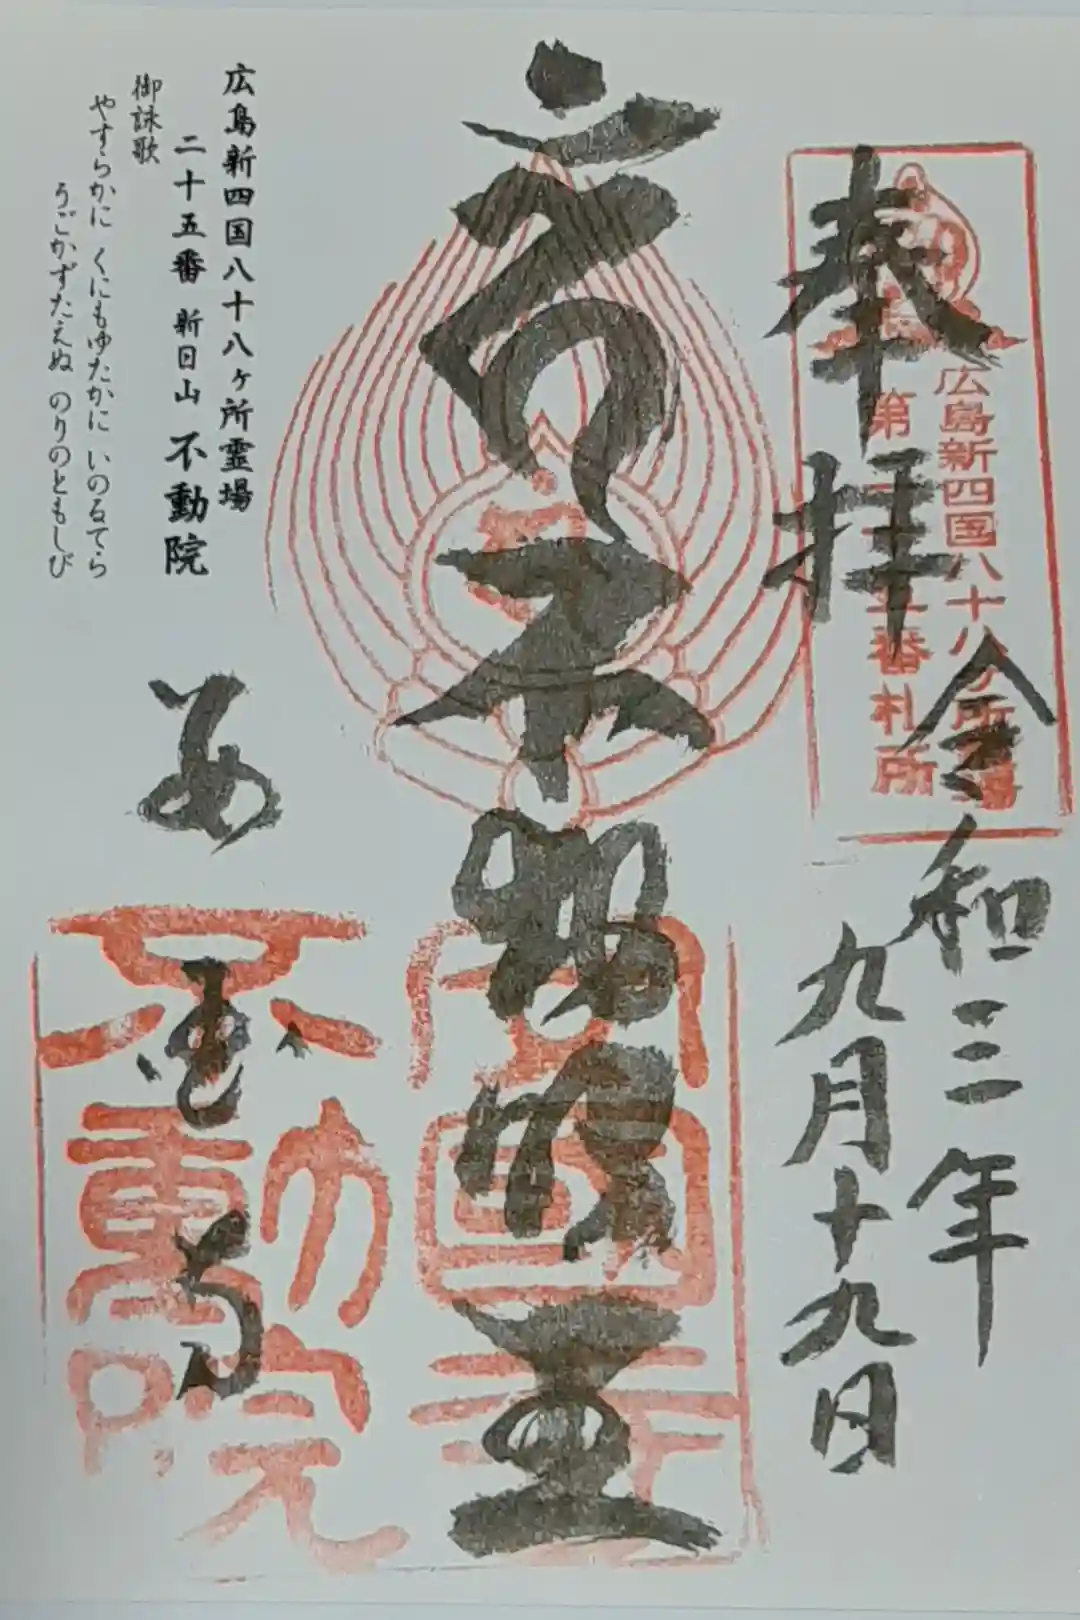 奉拝
広島新四国八十八ヶ所霊場
第二十五番札所
令和三年
九月十九日
不動明王
安國寺
安国寺
不動院
広島新四国八十八ヶ所霊場
二十五番 新日山 不動院
御詠歌
やすらかに くにもゆたかに いのるてら
うごかずたえぬ のりのともしび